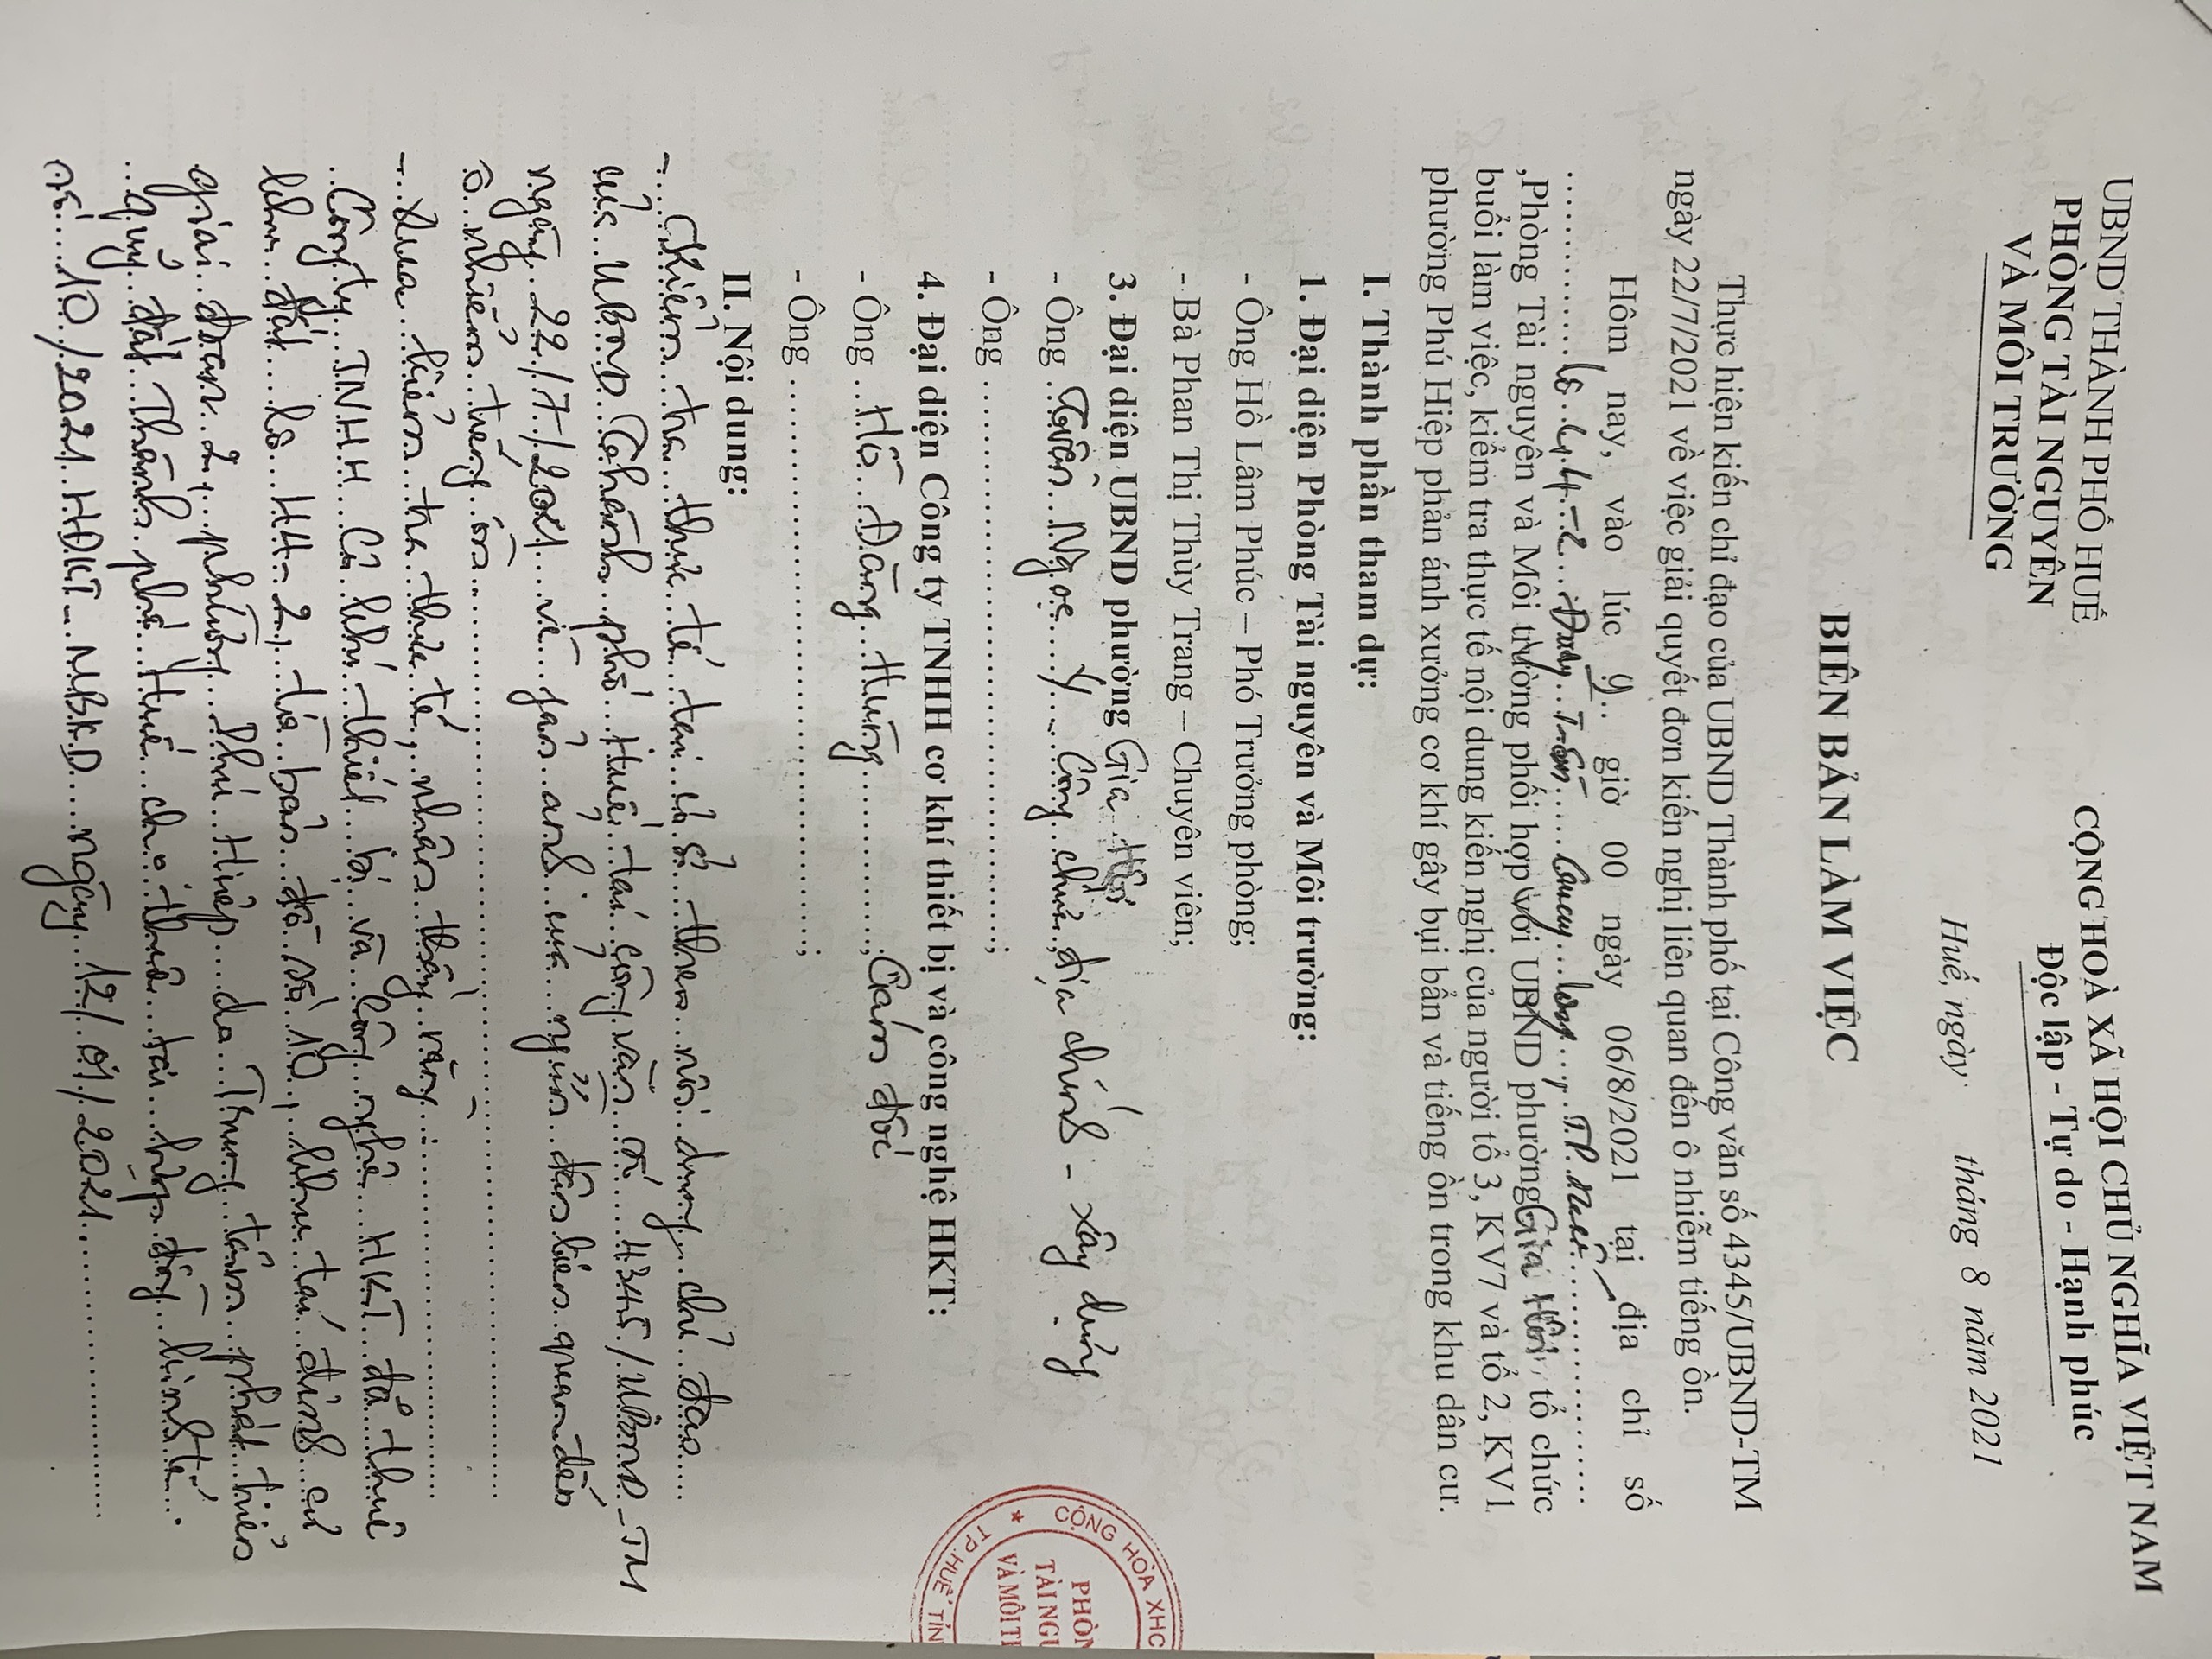 UBND THÀNH PHỐ HUẾ
PHÒNG TÀI NGUYÊN
VÀ MÔI TRƯỜNG
CỘNG HOÀ XÃ HỘI CHỦ NGHĨA VIỆT NAM
Độc lập - Tự do - Hạnh phúc
Huế, ngày tháng 8 năm 2021
BIÊN BẢN LÀM VIỆC
Thực hiện kiến chỉ đạo của UBND Thành phố tại Công văn số 4345/UBND-TM
ngày 22/7/2021 về việc giải quyết đơn kiến nghị liên quan đến ô nhiễm tiếng ồn.
Hôm nay, vào lúc 9 giờ 00 ngày 06/8/2021 tại địa chỉ số
lô
,Phòng Tài nguyên và Môi trường phối hợp với UBND phường tổ chức
buổi làm việc, kiểm tra thực tế nội dung kiến nghị của người tổ 3, KV7 và tổ 2, KV1
phường Phú Hiệp phản ánh xưởng cơ khí gây bụi bẩn và tiếng ồn trong khu dân cư.
I. Thành phần tham dự:
1. Đại diện Phòng Tài nguyên và Môi trường:
- Ông Hồ Lâm Phúc – Phó Trưởng phòng;
- Bà Phan Thị Thùy Trang – Chuyên viên;
3. Đại diện UBND phường Gia
- Ông Ngọc Ý - Công chức địa chính - xây dựng
- Ông ;
4. Đại diện Công ty TNHH cơ khí thiết bị và công nghệ HKT:
- Ông Hồ Đăng Hùng ; Giám đốc
- Ông ;
II. Nội dung:
- Kiểm tra thực tế tại cơ sở theo nội dung chỉ đạo
của UBND Thành phố Huế tại công văn số 4345/UBND-TM
ngày 22/7/2021 về phản ánh của người dân liên quan đến
ô nhiễm tiếng ồn.
- Qua kiểm tra thực tế, nhận thấy rằng:
Công ty TNHH Cơ khí thiết bị và công nghệ HKT đã thuê
khu đất lô H4-2, tờ bản đồ số 10, khu tái định cư
giai đoạn 2, phường Phú Hiệp do Trung tâm phát triển
quỹ đất Thành phố Huế cho thuê tại hợp đồng kinh tế
số 10/2021 HĐKT-MBKD ngày 12/01/2021
CỘNG HÒA XHC
TP.HUẾ TỈN
PHÒN
TÀI NGU
VÀ MÔI T